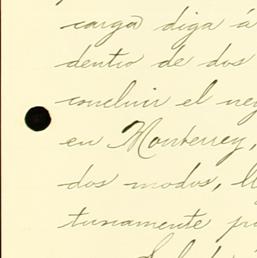 carga diga á
dentro de dos
concluir el neg
en Monterrey,
dos modos, ll
tunamente p